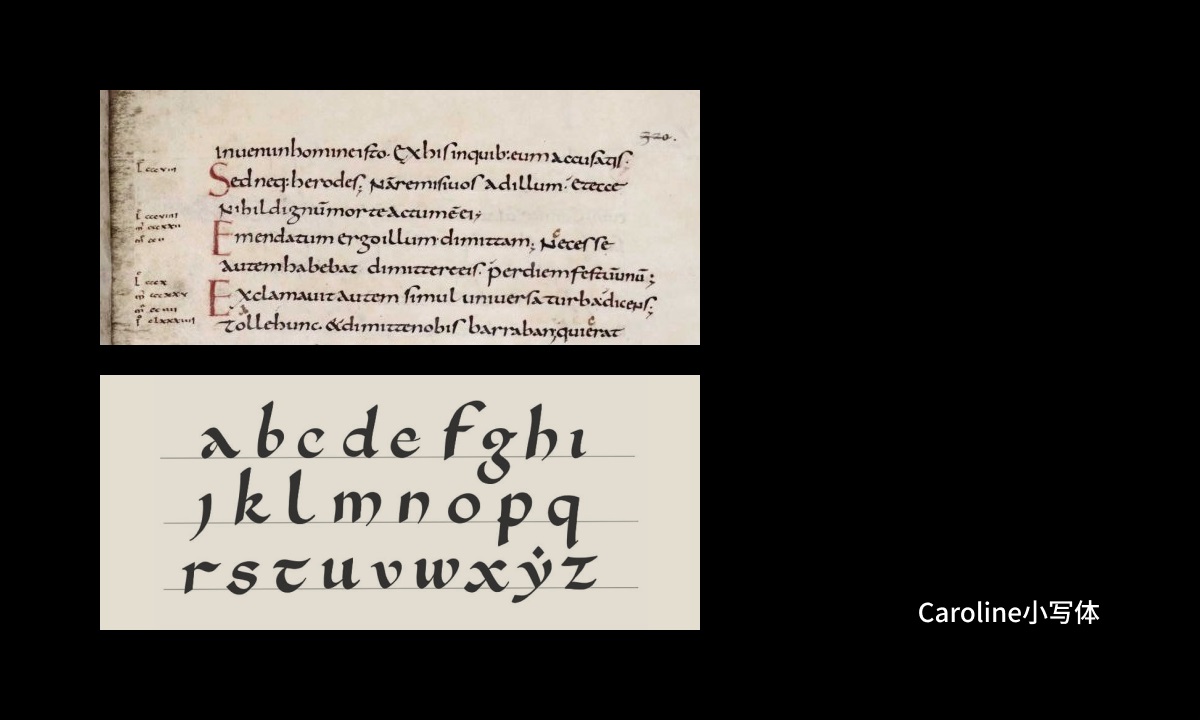 inueniinhomineisto. Exhisinquib:eum accusatis.
Sedneq:herodes; Nāremisiuos adillum. Etecce
Nihildignūmorteactumēei;
Emendatum ergoillum dimittam; Necesse
autemhabebat dimittereeis. perdiemfestūunū;
Exclamauitautem simul uniuersaturbadicens;
Tollehunc. &dimittenobis barraban;quierat
a b c d e f g h ı
ȷ k l m n o p q
r s t u v w x ẏ z
Caroline小写体